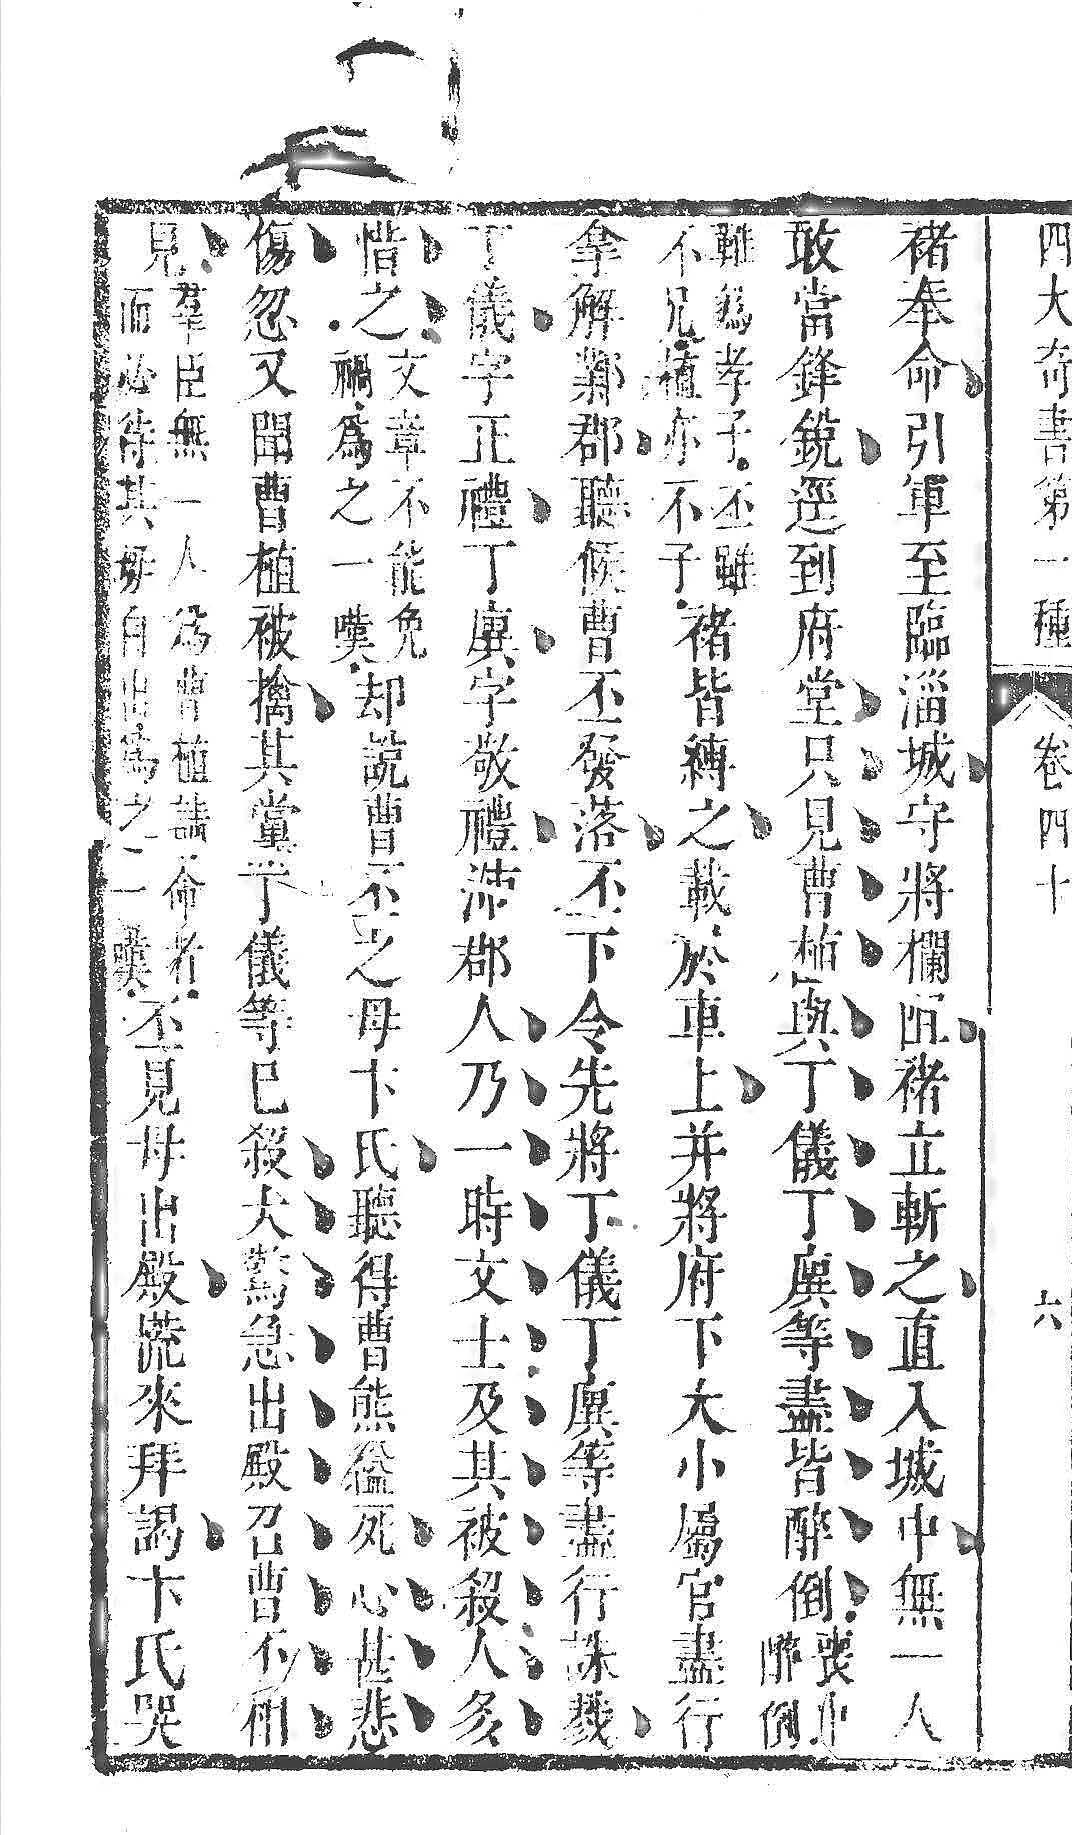 四大奇書第一種 卷四十 六
褚奉命引軍至臨淄城守將攔阻褚立斬之直入城中無一人
敢當鋒銳逕到府堂只見曹植與丁儀丁廙等盡皆醉倒喪中醉倒
難為孝子丕雖不兄植亦不子褚皆縛之載於車上并將府下大小屬官盡行
拿解鄴郡聽候曹丕發落丕下令先將丁儀丁廙等盡行誅戮
丁儀字正禮丁廙字敬禮沛郡人乃一時文士及其被殺人多
惜之文章不能免禍為之一嘆却說曹丕之母卞氏聽得曹熊縊死心甚悲
傷忽又聞曹植被擒其黨丁儀等已殺大驚急出殿召曹丕相
見羣臣無一人為曹植請命者而必待其母自出為之一嘆丕見母出殿慌來拜謁卞氏哭